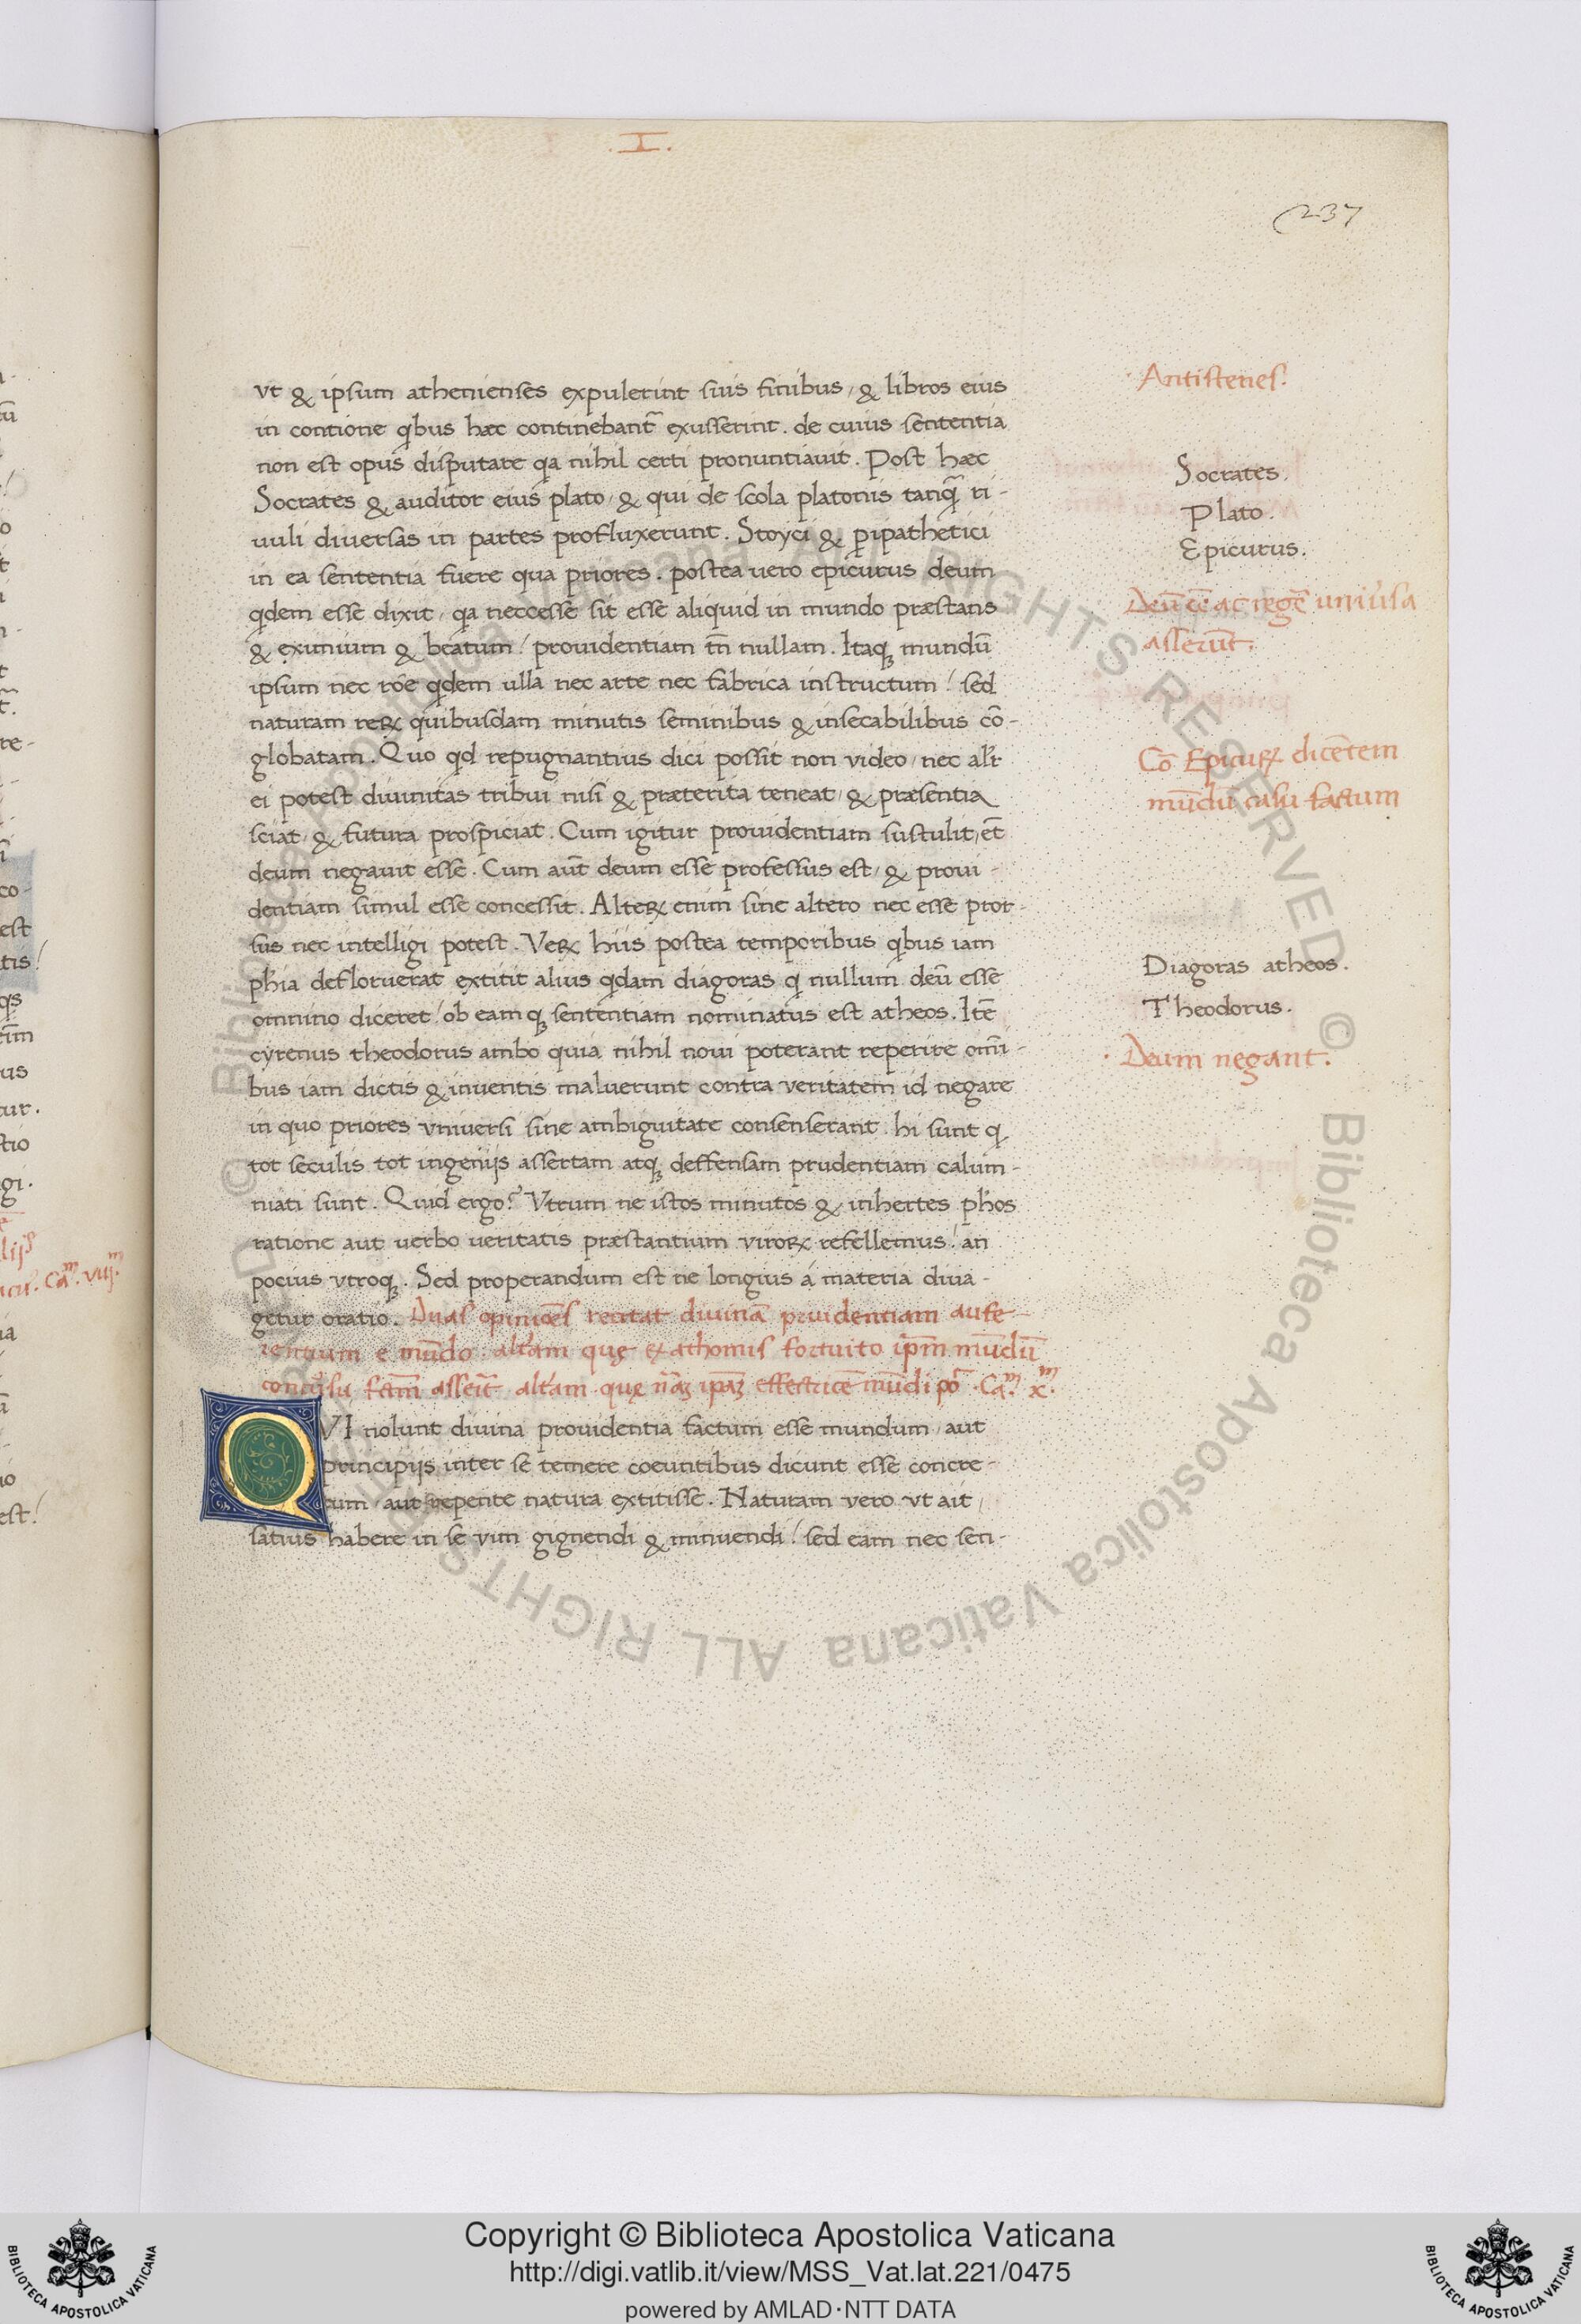 .I.
237
vt & ipsum athenienses expulerint suis finibus / & libros eius
in contione qibus hæc continebant̃ exusserint. de cuius sententia
non est opus disputare qa nihil certi pronuntiauit. Post hæc
Socrates & auditor eius plato / & qui de scola platonis tanq̃ ri-
uuli diuersas in partes profluxerunt. Stoyci & ꝑipathetici
in ea sententia fuere qua priores. postea uero epicurus deum
qdem esse dixit / qa neccesse sit esse aliquid in mundo præstans
& eximium & beatum / prouidentiam tñ nullam. Itaqꝫ mundū
ipsum nec rõe qdem ulla nec arte nec fabrica instructum / sed
naturam reꝝ quibusdam minutis seminibus & insecabilibus cō-
globatam. Quo qd repugnantius dici possit non video / nec alr̃
ei potest diuinitas tribui nisi & præterita teneat / & præsentia
sciat / & futura prospiciat. Cum igitur prouidentiam sustulit / et̃
deum negauit esse. Cum aut̃ deum esse professus est / & proui-
dentiam simul esse concessit. Alteꝝ enim sine altero nec esse pror-
sus nec intelligi potest. Veꝝ hiis postea temporibus qibus iam
ph̃ia defloruerat extitit alius qdam diagoras q nullum deū esse
omnino diceret / ob eam qꝫ sententiam nominatus est atheos. Itē
cyrenus theodorus ambo quia nihil noui poterant reperire omĩ-
bus iam dictis & inuentis maluerunt contra veritatem id negare
in quo priores vniuersi sine ambiguitate consenserant. hi sunt q
tot seculis tot ingenijs assertam atqꝫ deffensam prudentiam calum-
niati sunt. Quid ergo? Vtrum ne istos minutos & inhertes ph̃os
ratione aut uerbo ueritatis præstantium viroꝝ refellemus / an
pocius vtroqꝫ. Sed properandum est ne longius á materia diua-
getur oratio. Duas opiniões recitat diuinã prouidentiam aufe-
rentium e mūdo. altãm quę ex athomis fortuito ip̃m mūdū
concursu fc̃tm asserit altãm quę nãꝫ ip̃aꝫ effectricē mūdi põ. Ca.ᵐ x.ᵐ
QVI nolunt diuina prouidentia factum esse mundum / aut
principijs inter se temere coeuntibus dicunt esse concre-
tum / aut repente natura extitisse. Naturam vero vt ait /
satius habere in se vim gignendi & minuendi / sed eam nec sen-
Antistenes.
Socrates.
Plato.
Epicurus.
Deū eē ac regē uniũsa
asserūt.
Cõ Epicuꝝ dicētem
mūdū casu factum
Diagoras atheos.
Theodorus.
Deum negant.
© Biblioteca Apostolica Vaticana ALL RIGHTS RESERVED
© Biblioteca Apostolica Vaticana ALL RIGHTS
Copyright © Biblioteca Apostolica Vaticana
http://digi.vatlib.it/view/MSS_Vat.lat.221/0475
powered by AMLAD·NTT DATA
BIBLIOTECA APOSTOLICA VATICANA
BIBLIOTECA APOSTOLICA VATICANA